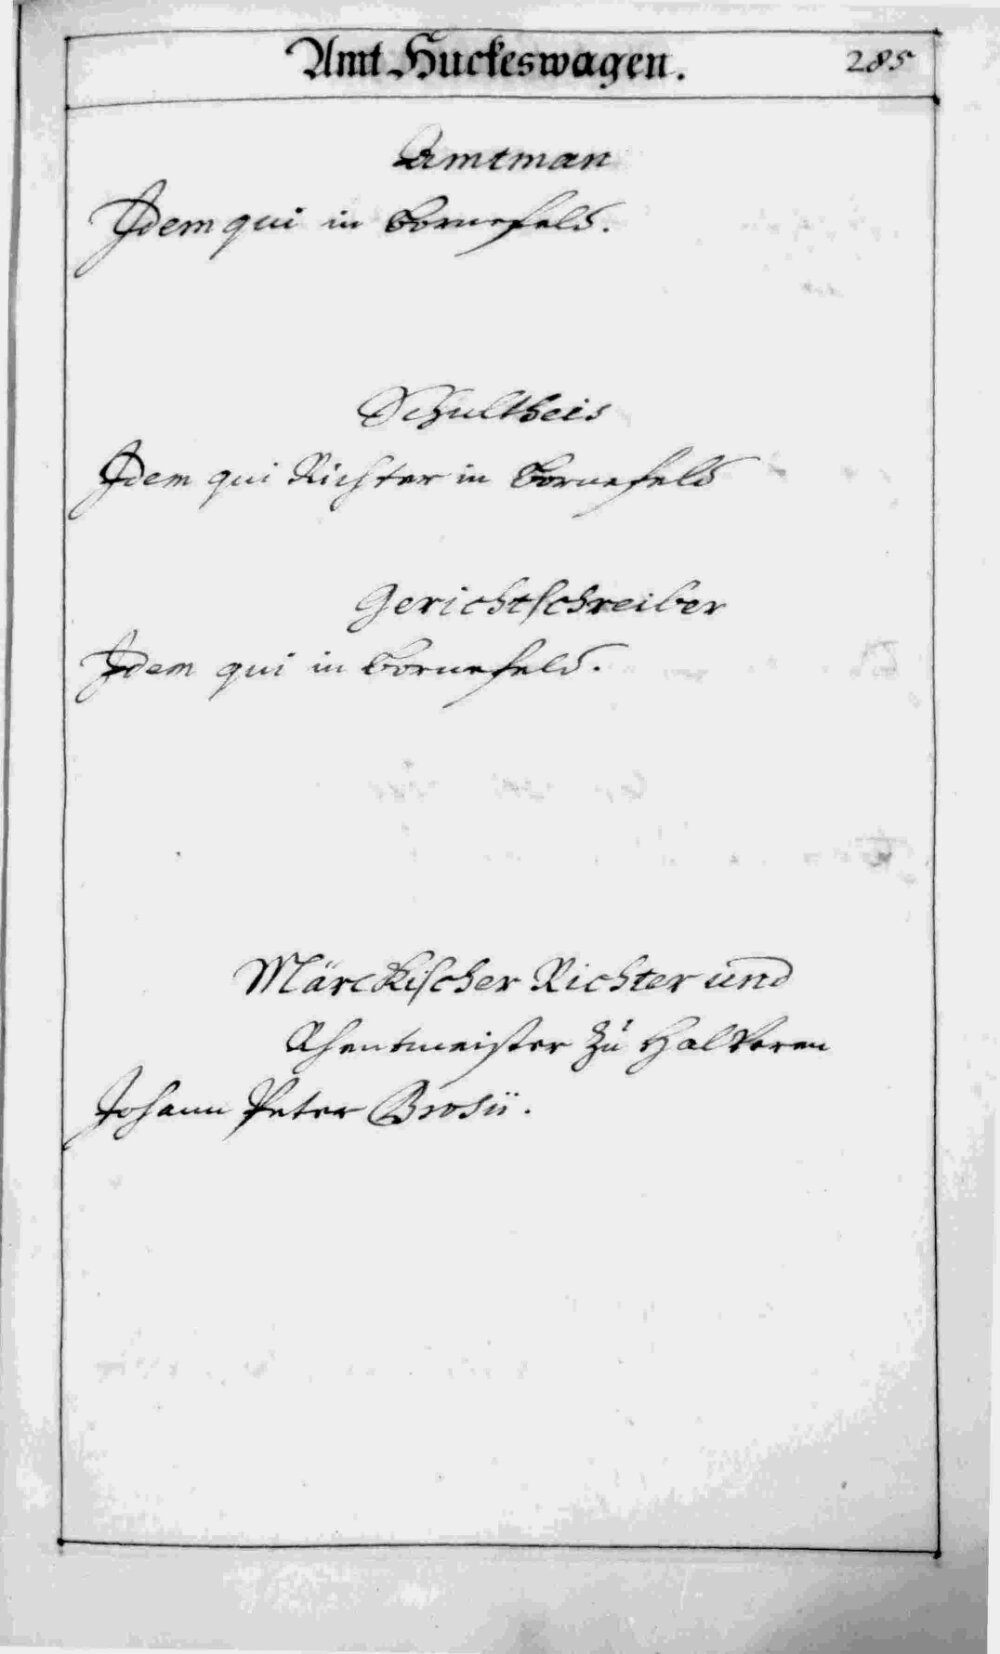 Amt Huckeswagen. 285
Amtman
Idem qui in Bornefeld.
Schultheis
Idem qui Richter in Bornefeld
Gerichtschreiber
Idem qui in Bornefeld.
Märckischer Richter und
Rhentmeister zu Halveren
Johann Peter Brosii.